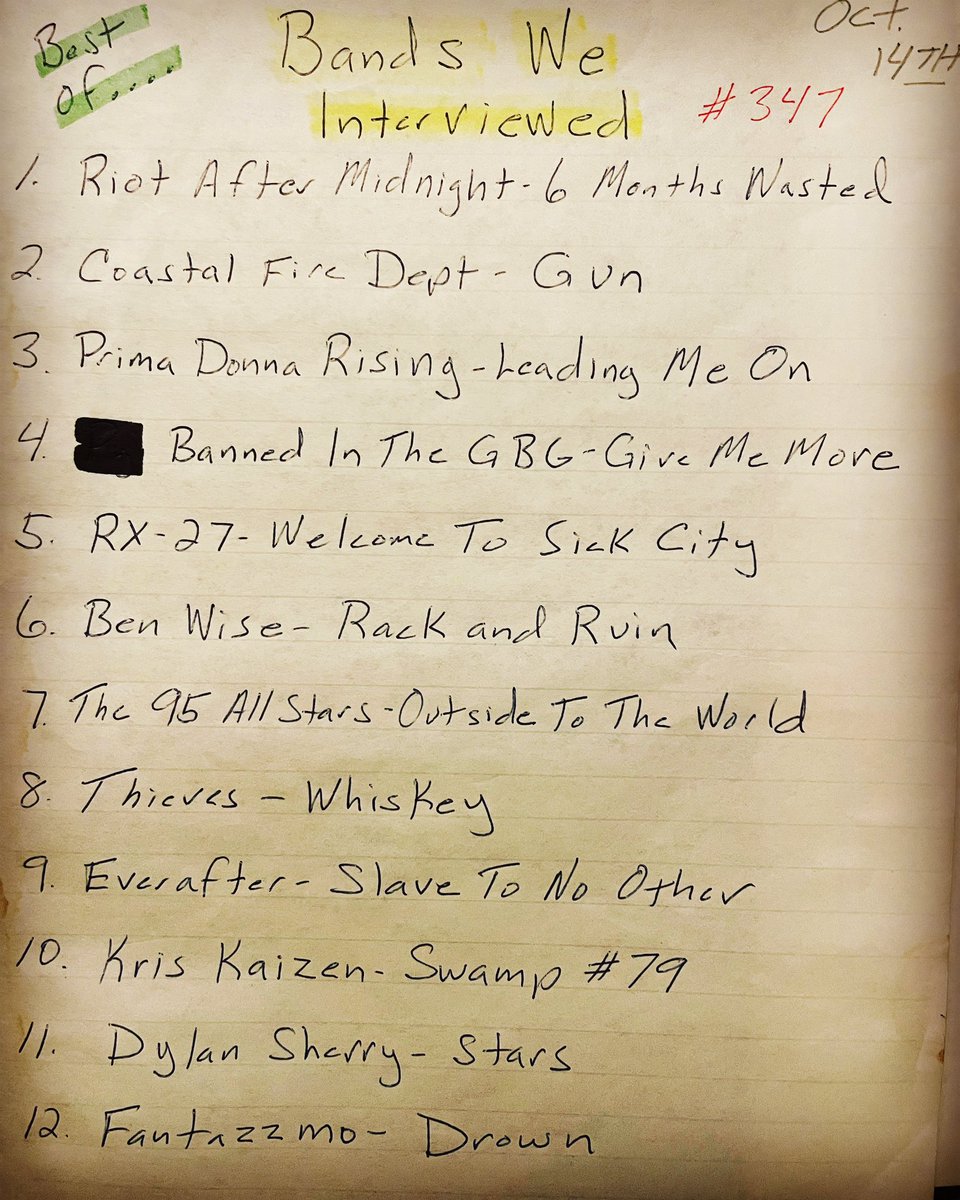 Best
of....
Bands We
Interviewed
Oct.
14TH
#347
1. Riot After Midnight - 6 Months Wasted
2. Coastal Fire Dept - Gun
3. Prima Donna Rising - Leading Me On
4. Banned In The GBG - Give Me More
5. RX-27 - Welcome To Sick City
6. Ben Wise - Rack and Ruin
7. The 95 All Stars - Outside To The World
8. Thieves - Whiskey
9. Everafter - Slave To No Other
10. Kris Kaizen - Swamp #79
11. Dylan Sherry - Stars
12. Fantazzmo - Drown